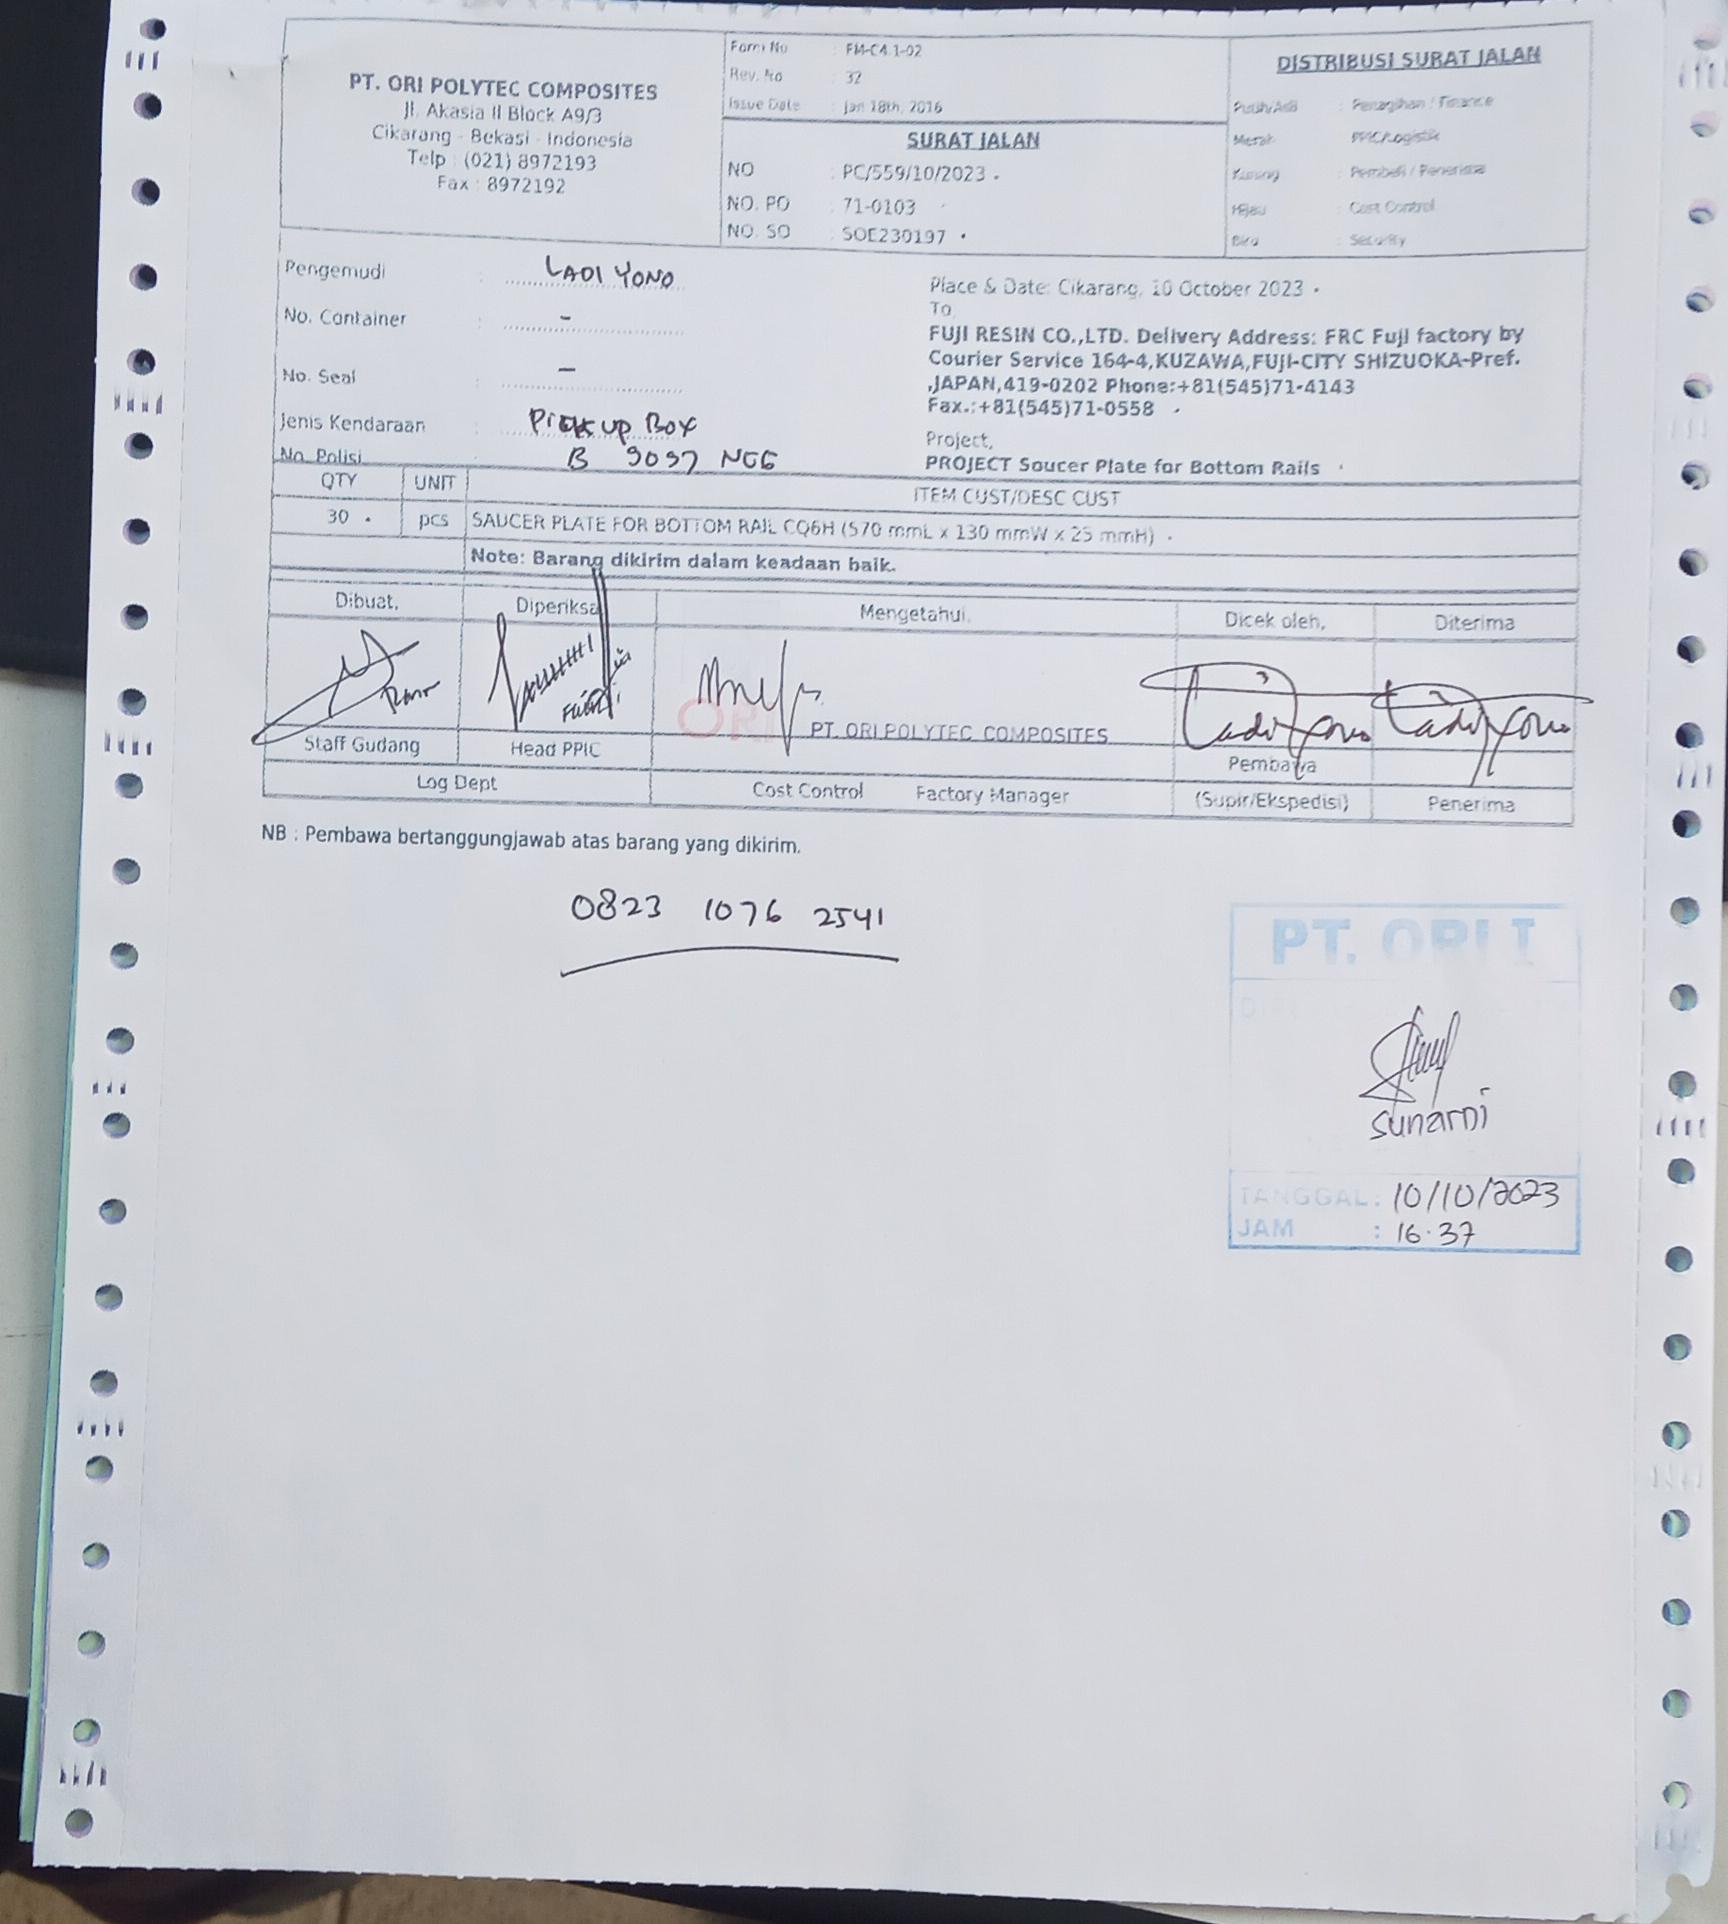 PT. ORI POLYTEC COMPOSITES
Jl. Akasia II Block A9/3
Cikarang - Bekasi - Indonesia
Telp : (021) 8972193
Fax : 8972192
Form No : FM-C4.1-02
Rev. No : 32
Issue Date : Jan 18th, 2016
SURAT JALAN
NO : PC/559/10/2023
NO. PO : 71-0103
NO. SO : SOE230197
DISTRIBUSI SURAT JALAN
Putih/Asli : Penagihan / Finance
Merah PPIC/Logistik
Kuning : Pembeli / Penerima
Hijau : Cost Control
Biru : Security
Pengemudi : LADI YONO
No. Container : -
No. Seal : -
Jenis Kendaraan : Pick up Box
No. Polisi B 9097
Place & Date: Cikarang, 10 October 2023
To,
FUJI RESIN CO.,LTD. Delivery Address: FRC Fuji factory by
Courier Service 164-4,KUZAWA,FUJI-CITY SHIZUOKA-Pref.
,JAPAN,419-0202 Phone:+81(545)71-4143
Fax.:+81(545)71-0558
Project,
PROJECT Soucer Plate for Bottom Rails
QTY UNIT ITEM CUST/DESC CUST
30 pcs SAUCER PLATE FOR BOTTOM RAIL CQ6H (570 mmL x 130 mmW x 25 mmH)
Note: Barang dikirim dalam keadaan baik.
Dibuat, Diperiksa Mengetahui, Dicek oleh, Diterima
ORI PT. ORI POLYTEC COMPOSITES Ladiyono Ladiyono
Staff Gudang Head PPIC Pembawa
Log Dept Cost Control Factory Manager (Supir/Ekspedisi) Penerima
NB : Pembawa bertanggungjawab atas barang yang dikirim.
0823 1076 2541
PT. ORI I
sunardi
TANGGAL : 10/10/2023
JAM : 16.37